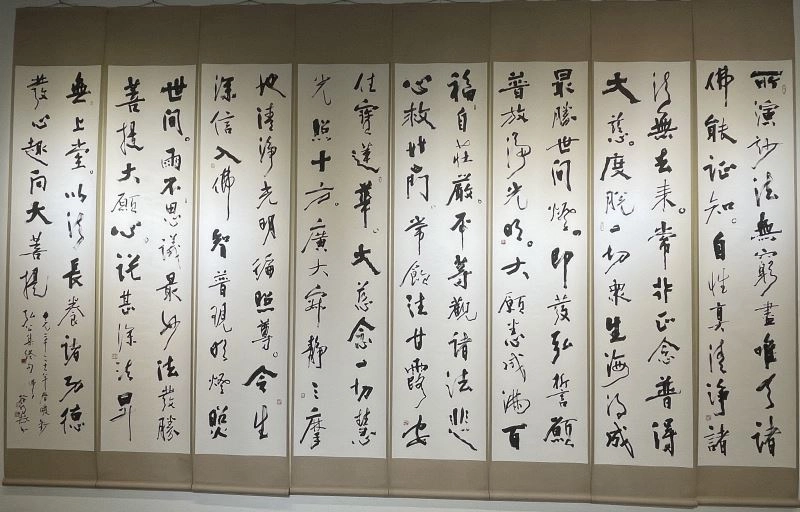 所演妙法無窮盡唯有諸
佛能证知。自性真清淨諸
法無去来。常正念普得
大慈。度脱一切衆生海得成
最勝世间燈。即發弘誓願
普放淨光明。大願悉成滿百
福自莊嚴。平等觀諸法悲
心救常飲法甘露安
住寶蓮華。大慈念一切慧
光照十方。廣大寂靜三摩
地清淨光明遍照尊。令生
深信入佛智普現明燈照
世间。雨不思議最妙法發勝
菩提大願心。说甚深法昇
無上堂。以法長養諸功德
發心趣向大菩提